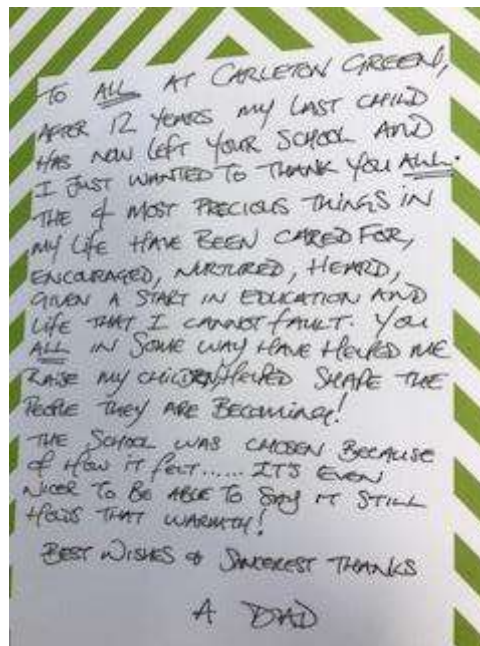 To ALL AT CARLETON GREEN,
AFTER 12 YEARS MY LAST CHILD
HAS NOW LEFT YOUR SCHOOL AND
I JUST WANTED TO THANK YOU ALL.
THE 4 MOST PRECIOUS THINGS IN
MY LIFE HAVE BEEN CARED FOR,
ENCOURAGED, NURTURED, HEARD,
GIVEN A START IN EDUCATION AND
LIFE THAT I CANNOT FAULT. YOU
ALL IN SOME WAY HAVE HELPED ME
RAISE MY CHILDREN, HELPED SHAPE THE
PEOPLE THEY ARE BECOMING!
THE SCHOOL WAS CHOSEN BECAUSE
OF HOW IT FELT...... IT'S EVEN
NICER TO BE ABLE TO SAY IT STILL
HOLDS THAT WARMTH!
BEST WISHES & SINCEREST THANKS
A DAD